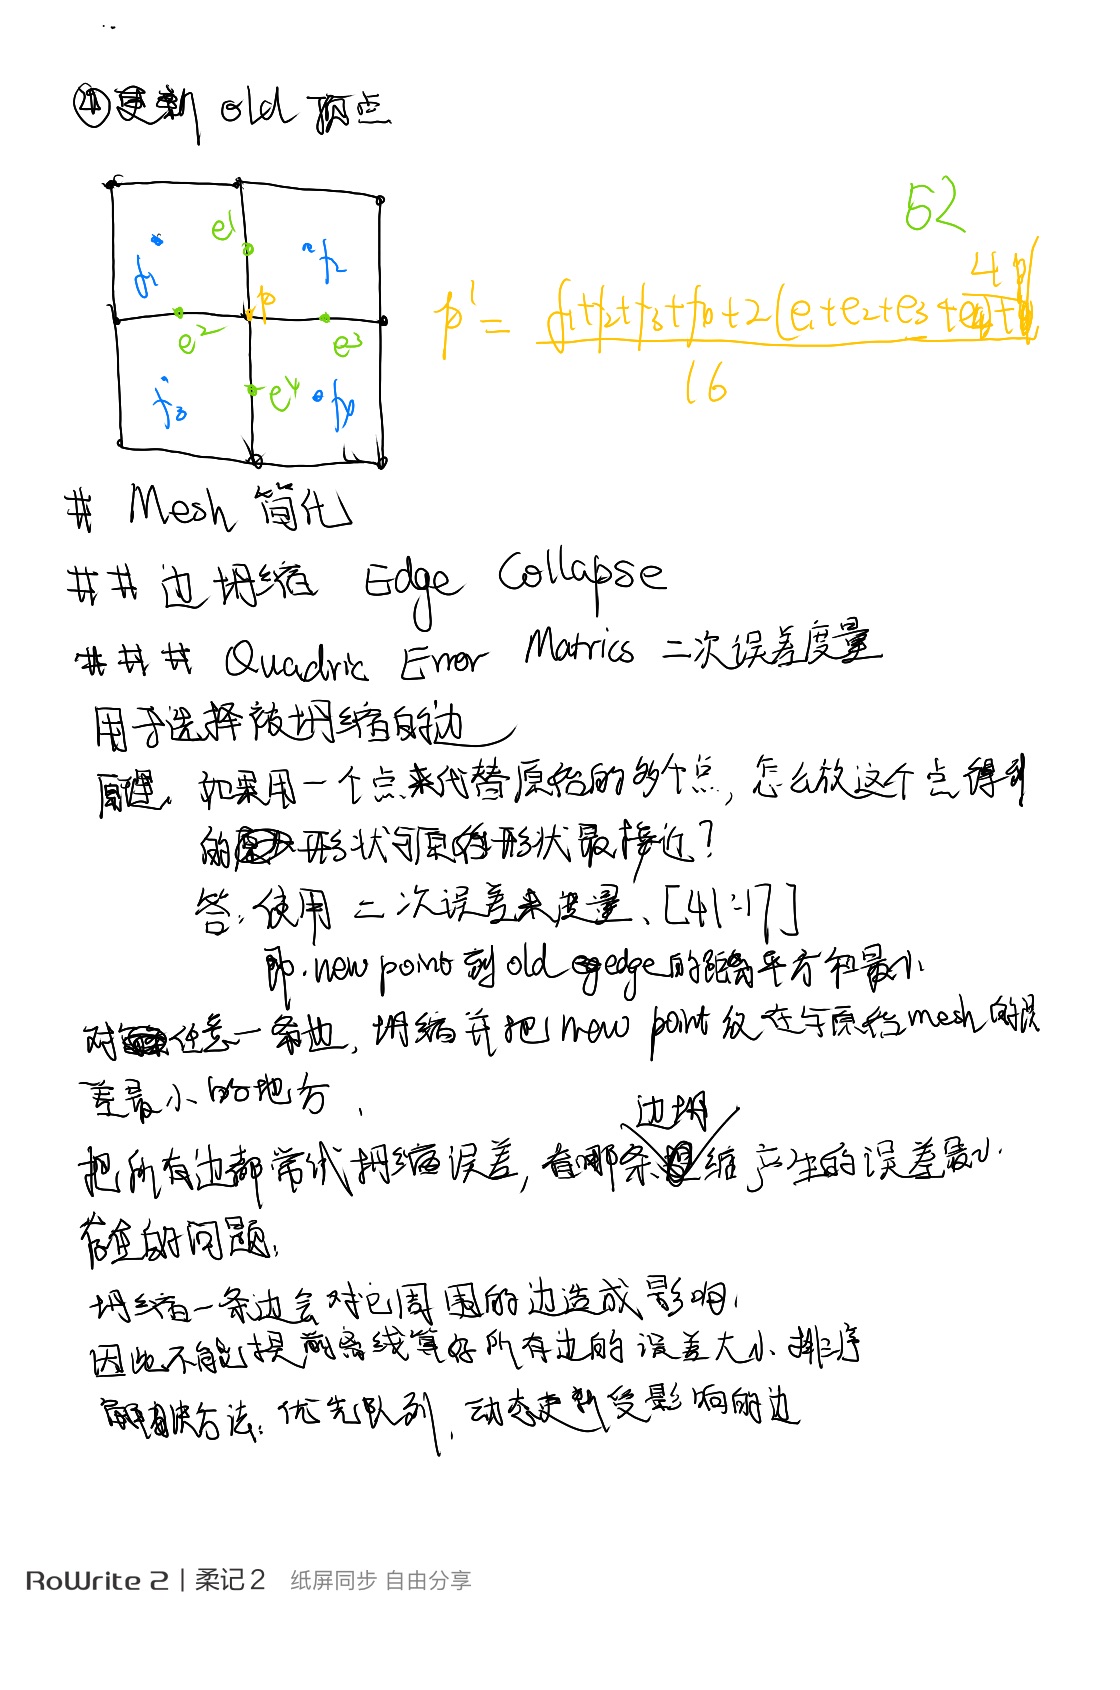 ④更新 old 顶点
52
e1
f1
f2
p
e2
e3
f3
e4
f4
p' = f1+f2+f3+f4+2(e1+e2+e3+e4)+4p
16
# Mesh 简化
## 边坍缩 Edge Collapse
### Quadric Error Matrics 二次误差度量
用于选择被坍缩的边
原理: 如果用一个点来代替原始的多个点, 怎么放这个点得到
的形状与原始形状最接近?
答: 使用二次误差来度量、[41:17]
即. new point 到 old edge的距离平方和最小
对任意一条边, 坍缩并把 new point 放在与原始mesh的误
差最小的地方.
把所有边都尝试坍缩误差, 看哪条边坍缩产生的误差最小.
存在的问题:
坍缩一条边会对它周围的边造成影响.
因此不能提前离线算好所有边的误差大小排序
解决方法: 优先队列, 动态更新受影响的边
RoWrite 2 | 柔记 2 纸屏同步 自由分享